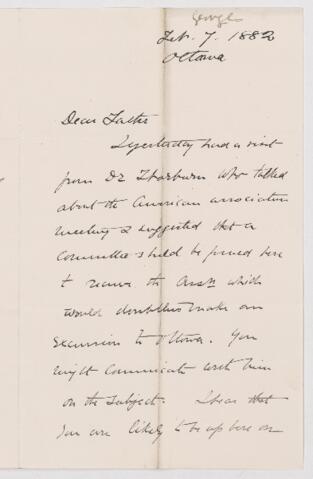 George
Feb. 7. 1882
Ottawa
Dear Father
I yesterday had a visit
from Dr Thorburn who talked
about the American association
meeting & suggested that a
Committee shld be formed here
to receive the Assn which
would doubtless make an
excursion to Ottawa. You
might communicate with him
on the subject. I hear that
you are likely to be up here on